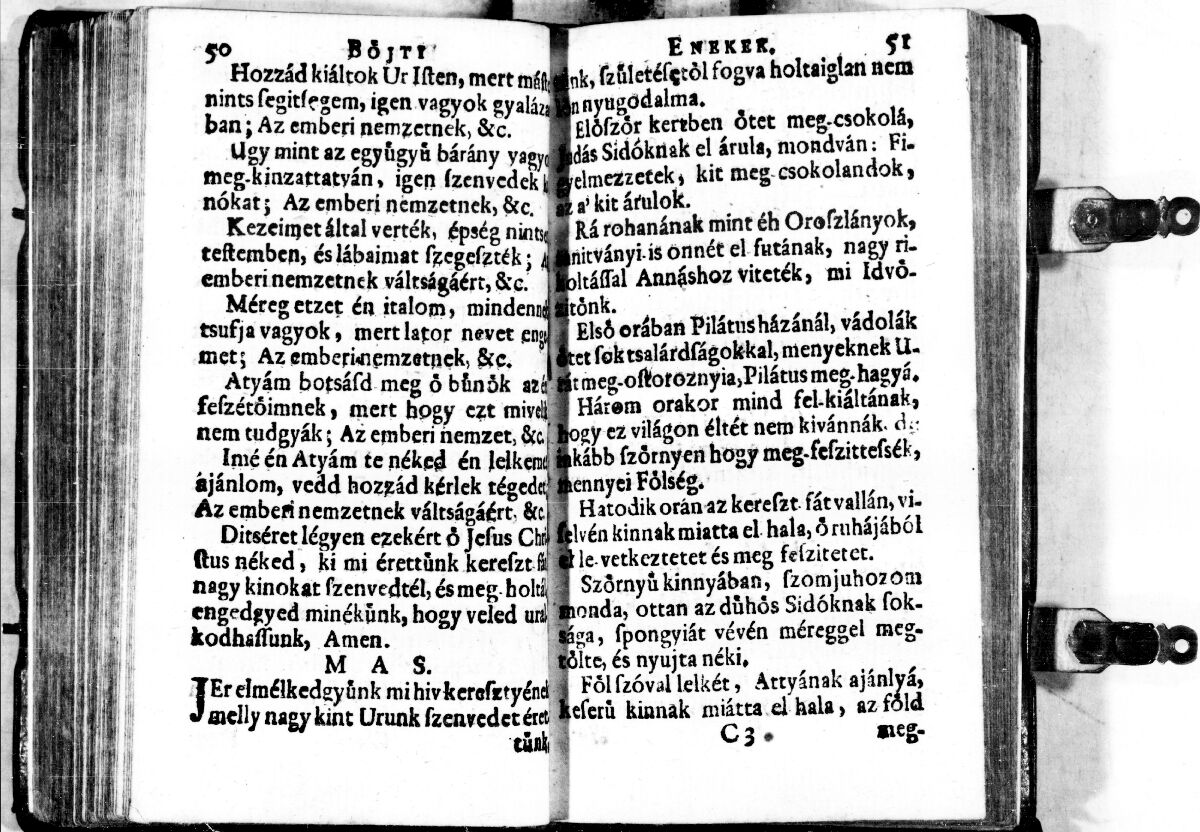 50 BȮJTI
Hozzád kiáltok Ur Iſten, mert
nints ſegitſegem, igen vagyok
ban; Az emberi nemzetnek, &c.
Ugy mint az egyu̇gyu̇ bárány
meg-kinzattatván, igen ſzenvedek
nókat; Az emberi nemzetnek, &c.
Kezeimet által verték, épség
teſtemben, és lábaimat ſzegeſzték;
emberi nemzetnek váltságáért, &c.
Méreg etzet én italom,
tsufja vagyok, mert lator nevet
met; Az emberi nemzetnek, &c.
Atyám botsásd meg ȯ bu̇nȯk
feſzétȯimnek, mert hogy ezt
nem tudgyák; Az emberi nemzet, &c.
Imé én Atyám te néked én
ájánlom, vedd hozzád kérlek tégedet
Az emberi nemzetnek váltságáért, &c.
Ditséret légyen ezekért ȯ Jeſus Chri-
ſtus néked, ki mi érettu̇nk kereſzt
nagy kinokat ſzenvedtél, és meg-holtál
engedgyed minéku̇nk, hogy veled
kodhaſſunk, Amen.
M A S.
JEr elmélkedgyu̇nk mi hiv kereſztyének
melly nagy kint Urunk ſzenvedet éret
tu̇nk,
ENEKEK. 51
ſzu̇letéſetȯl fogva holtaiglan nem
nyugodalma.
Elȯſzȯr kertben ȯtet meg-csokolá,
Sidóknak el árula, mondván: Fi-
kit meg-csokolandok,
a' kit árulok.
Rá rohanának mint éh Oroſzlányok,
is onnét el futának, nagy ri-
Annáshoz viteték, mi Idvȯ-
zitȯnk.
Elsȯ orában Pilátus házánál, vádolák
ȯtet ſok tsalárdſágokkal, menyeknek U-
rát meg-oſtoroznyia, Pilátus meg-hagyá.
Három orakor mind fel-kiáltának,
hogy ez világon éltét nem kivánnák, de
inkább ſzȯrnyen hogy meg-feſzitteſsék,
mennyei Fȯlség.
Hatodik orán az kereſzt-fát vallán, vi-
ſelvén kinnak miatta el hala, ȯ ruhájából
el le-vetkeztetet és meg feſzitetet.
Szȯrnyu̇ kinnyában, ſzomjuhozom
monda, ottan az du̇hȯs Sidóknak ſok-
sága, ſpongyiát vévén méreggel meg-
tȯlte, és nyujta néki.
Fȯl ſzóval lelkét, Attyának ajánlyá,
keſeru̇ kinnak miátta el hala, az fȯld
C 3 meg-